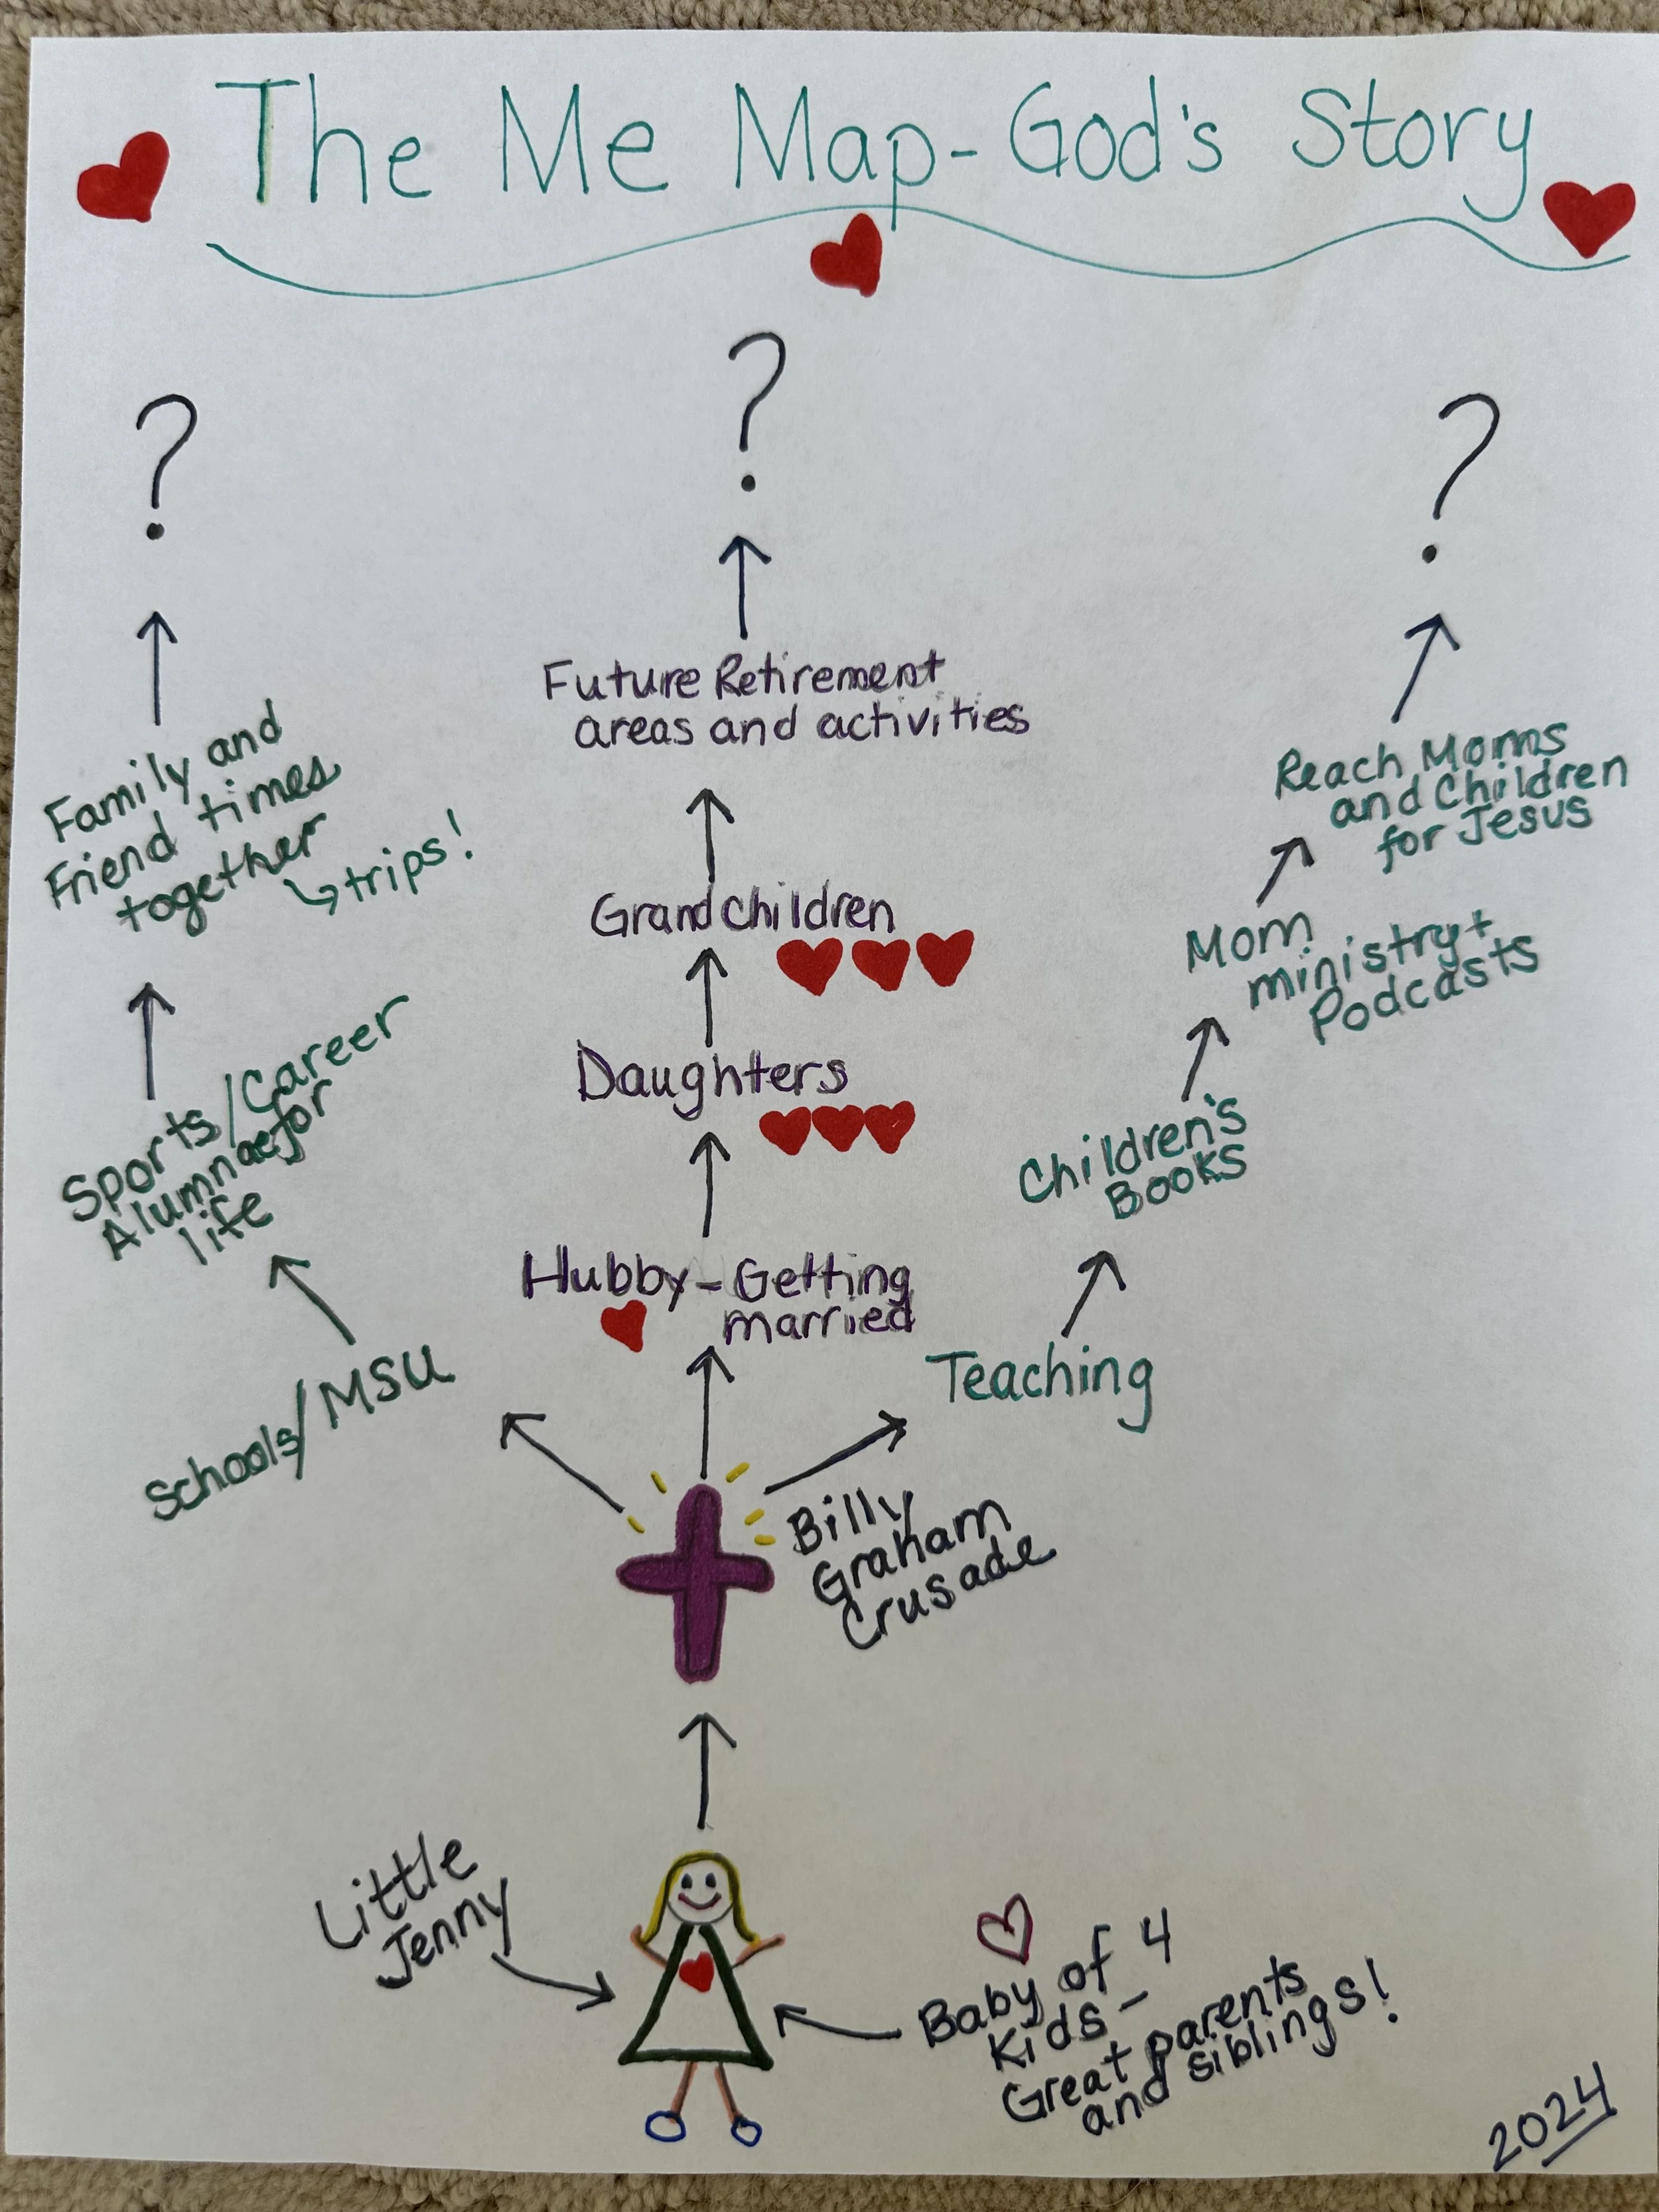 The Me Map - God's Story
?
?
?
Future Retirement
areas and activities
Family and
Friend times
together
↳ trips!
Reach Moms
and Children
for Jesus
Grandchildren
Mom
ministry +
Podcasts
Sports/Career
Alumnae for
life
Daughters
Children's
Books
Hubby - Getting
married
Schools/MSU
Teaching
Billy
Graham
Crusade
Little
Jenny
Baby of 4
Kids -
Great parents
and siblings!
2024